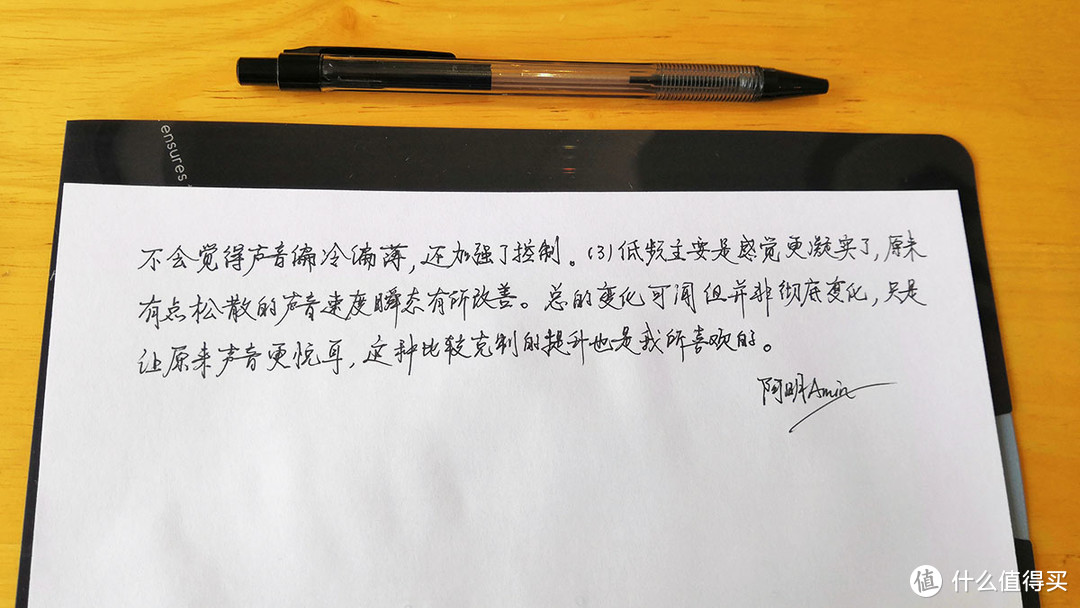 ensures
不会觉得声音偏冷偏薄，还加强了控制。(3)低频主要是感觉更凝实了，原来
有点松散的声音速度瞬态有所改善。总的变化可闻但并非彻底变化，只是
让原来声音更悦耳，这种比较克制的提升也是我所喜欢的。
阿明Amin
值 什么值得买